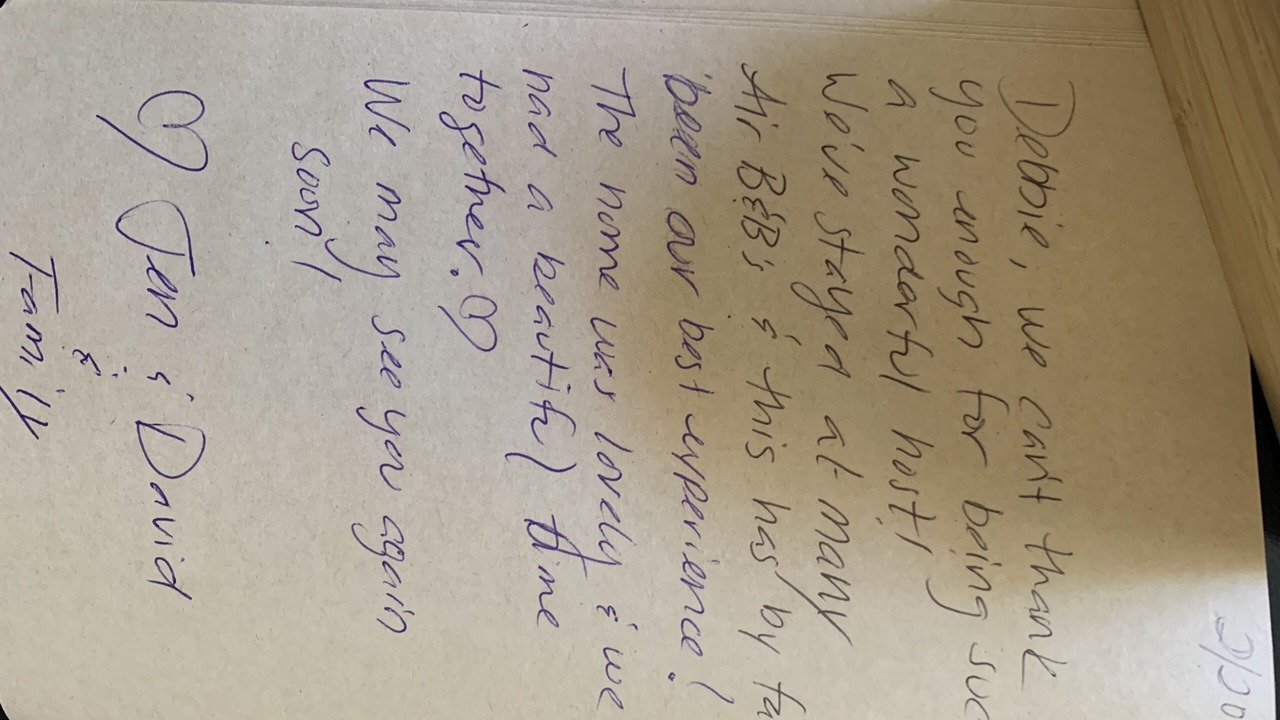 Debbie, we can't thank
you enough for being suc
a wonderful host!
We've stayed at many
Air B&B's & this has by fa
been our best experience!
The home was lovely & we
had a beautiful time
together. ♡
We may see you again
soon!
♡ Jen & David
&
Family